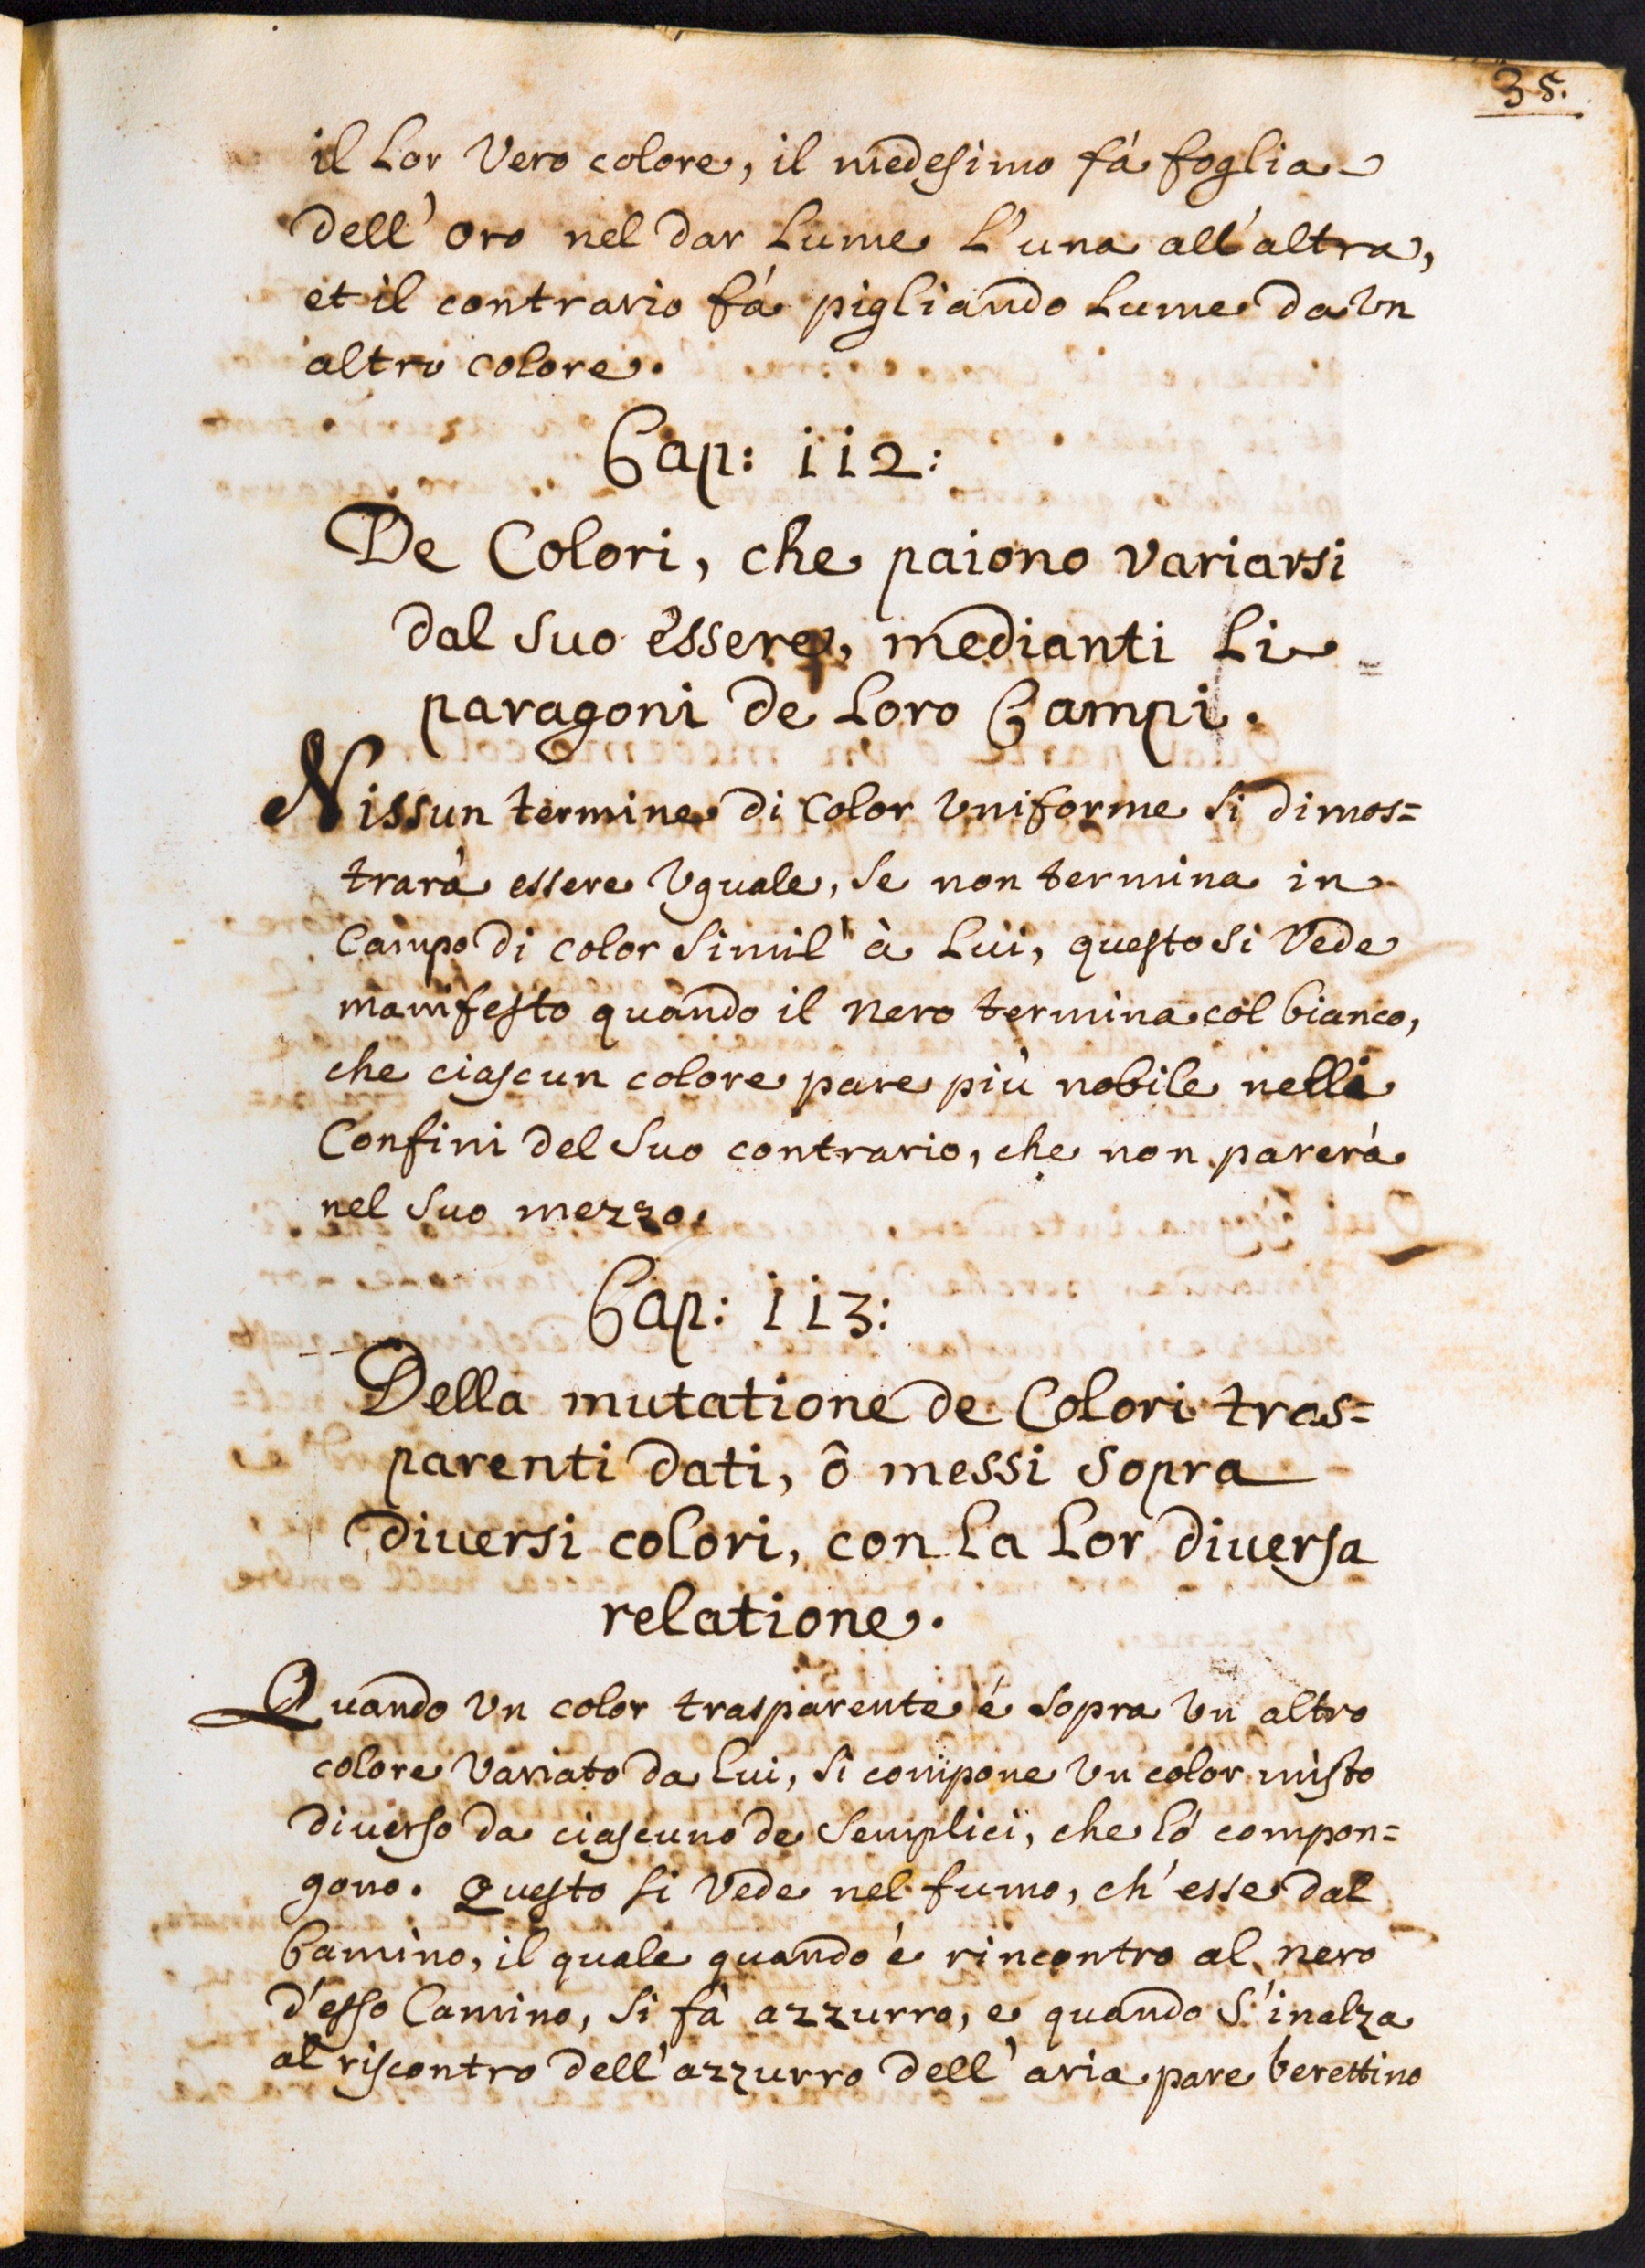 35.
il Lor Vero colore, il medesimo fá foglia
dell' oro nel dar Lume L'una all'altra,
et il contrario fá pigliando Lume da Vn
altro colore.
Cap: 112:
De Colori, che paiono variarsi
dal suo éssere, medianti Li
paragoni de Loro Campi.
Nissun termine di color Vniforme si dimos=
trarà essere Vguale, se non termina in
Campo di color simil' à Lui, questo si Vede
manifesto quando il nero termina col bianco,
che ciascun colore pare più nobile nelli
Confini del suo contrario, che non parerà
nel suo mezzo.
Cap: 113:
Della mutatione de Colori tras=
parenti dati, ô messi sopra
diuersi colori, con La Lor diuersa
relatione.
Quando Vn color trasparente é sopra Vn altro
colore Variato da Lui, si compone Vn color misto
diuerso da ciascuno de semplici, che ló compon=
gono. Questo si Vede nel fumo, ch'esse dal
Camino, il quale quando é rincontro al nero
d'esso Camino, si fà azzurro, e quando s'inalza
al riscontro dell'azzurro dell'aria pare berettino